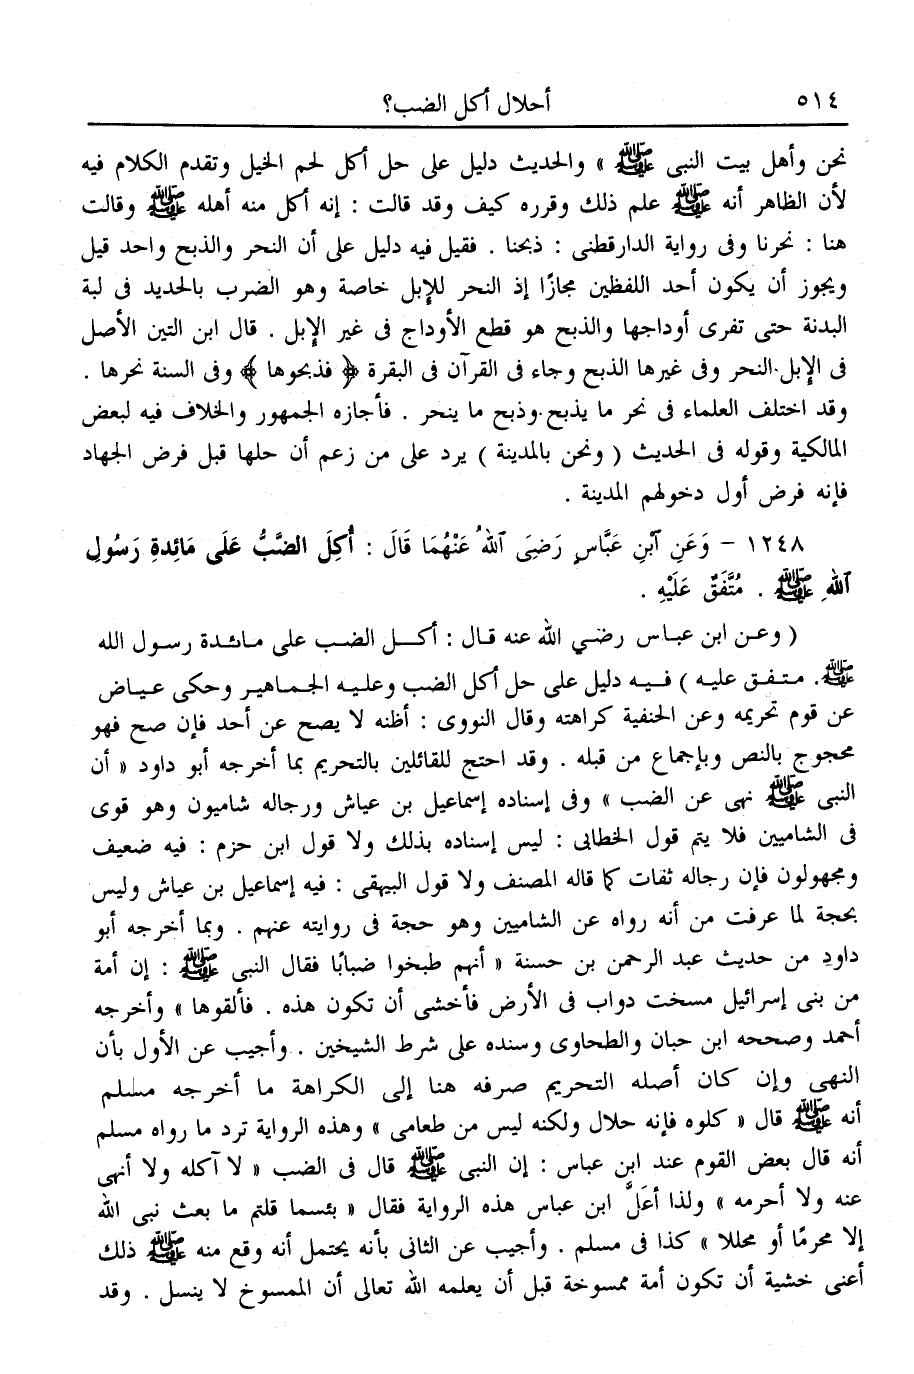 ٥١٤ أحلال أكل الضب؟
نحن وأهل بيت النبى ﷺ » والحديث دليل على حل أكل لحم الخيل وتقدم الكلام فيه
لأن الظاهر أنه ﷺ علم ذلك وقرره كيف وقد قالت : إنه أكل منه أهله ﷺ وقالت
هنا : نحرنا وفى رواية الدارقطنى : ذبحنا . فقيل فيه دليل على أن النحر والذبح واحد قيل
ويجوز أن يكون أحد اللفظين مجازًا إذ النحر للإبل خاصة وهو الضرب بالحديد فى لبة
البدنة حتى تفرى أوداجها والذبح هو قطع الأوداج فى غير الإبل . قال ابن التين الأصل
فى الإبل النحر وفى غيرها الذبح وجاء فى القرآن فى البقرة ﴿ فذبحوها ﴾ وفى السنة نحرها .
وقد اختلف العلماء فى نحر ما يذبح وذبح ما ينحر . فأجازه الجمهور والخلاف فيه لبعض
المالكية وقوله فى الحديث ( ونحن بالمدينة ) يرد على من زعم أن حلها قبل فرض الجهاد
فإنه فرض أول دخولهم المدينة .
١٢٤٨ – وَعَنِ ٱبْنِ عَبَّاسٍ رَضِىَ ٱللهُ عَنْهُمَا قَالَ : أُكِلَ الضَّبُّ عَلَى مَائِدةِ رَسُولِ
ٱللهِ ﷺ . مُتَّفَقٌ عَلَيْهِ .
( وعـن ابن عبـاس رضي الله عنه قـال : أكـل الضب علـى مـائدة رسـول الله
ﷺ. متـفـق عليـه ) فـيـه دليل علـى حل أكل الضب وعليـه الجـماهيـر وحكى عيـاض
عن قوم تحريمه وعن الحنفية كراهته وقال النووى : أظنه لا يصح عن أحد فإن صح فهو
محجوج بالنص وبإجماع من قبله . وقد احتج للقائلين بالتحريم بما أخرجه أبو داود « أن
النبى ﷺ نهى عن الضب » وفى إسناده إسماعيل بن عياش ورجاله شاميون وهو قوى
فى الشاميين فلا يتم قول الخطابى : ليس إسناده بذلك ولا قول ابن حزم : فيه ضعيف
ومجهولون فإن رجاله ثقات كما قاله المصنف ولا قول البيهقى : فيه إسماعيل بن عياش وليس
بحجة لما عرفت من أنه رواه عن الشاميين وهو حجة فى روايته عنهم . وبما أخرجه أبو
داود من حديث عبد الرحمن بن حسنة « أنهم طبخوا ضبابًا فقال النبى ﷺ : إن أمة
من بنى إسرائيل مسخت دواب فى الأرض فأخشى أن تكون هذه . فألقوها » وأخرجه
أحمد وصححه ابن حبان والطحاوى وسنده على شرط الشيخين . وأجيب عن الأول بأن
النهى وإن كان أصله التحريم صرفه هنا إلى الكراهة ما أخرجه مسلم
أنه ﷺ قال « كلوه فإنه حلال ولكنه ليس من طعامى » وهذه الرواية ترد ما رواه مسلم
أنه قال بعض القوم عند ابن عباس : إن النبى ﷺ قال فى الضب « لا آكله ولا أنهى
عنه ولا أحرمه » ولذا أعَلَّ ابن عباس هذه الرواية فقال « بئسما قلتم ما بعث نبى الله
إلا محرمًا أو محللا » كذا فى مسلم . وأجيب عن الثانى بأنه يحتمل أنه وقع منه ﷺ ذلك
أعنى خشية أن تكون أمة ممسوخة قبل أن يعلمه الله تعالى أن الممسوخ لا ينسل . وقد